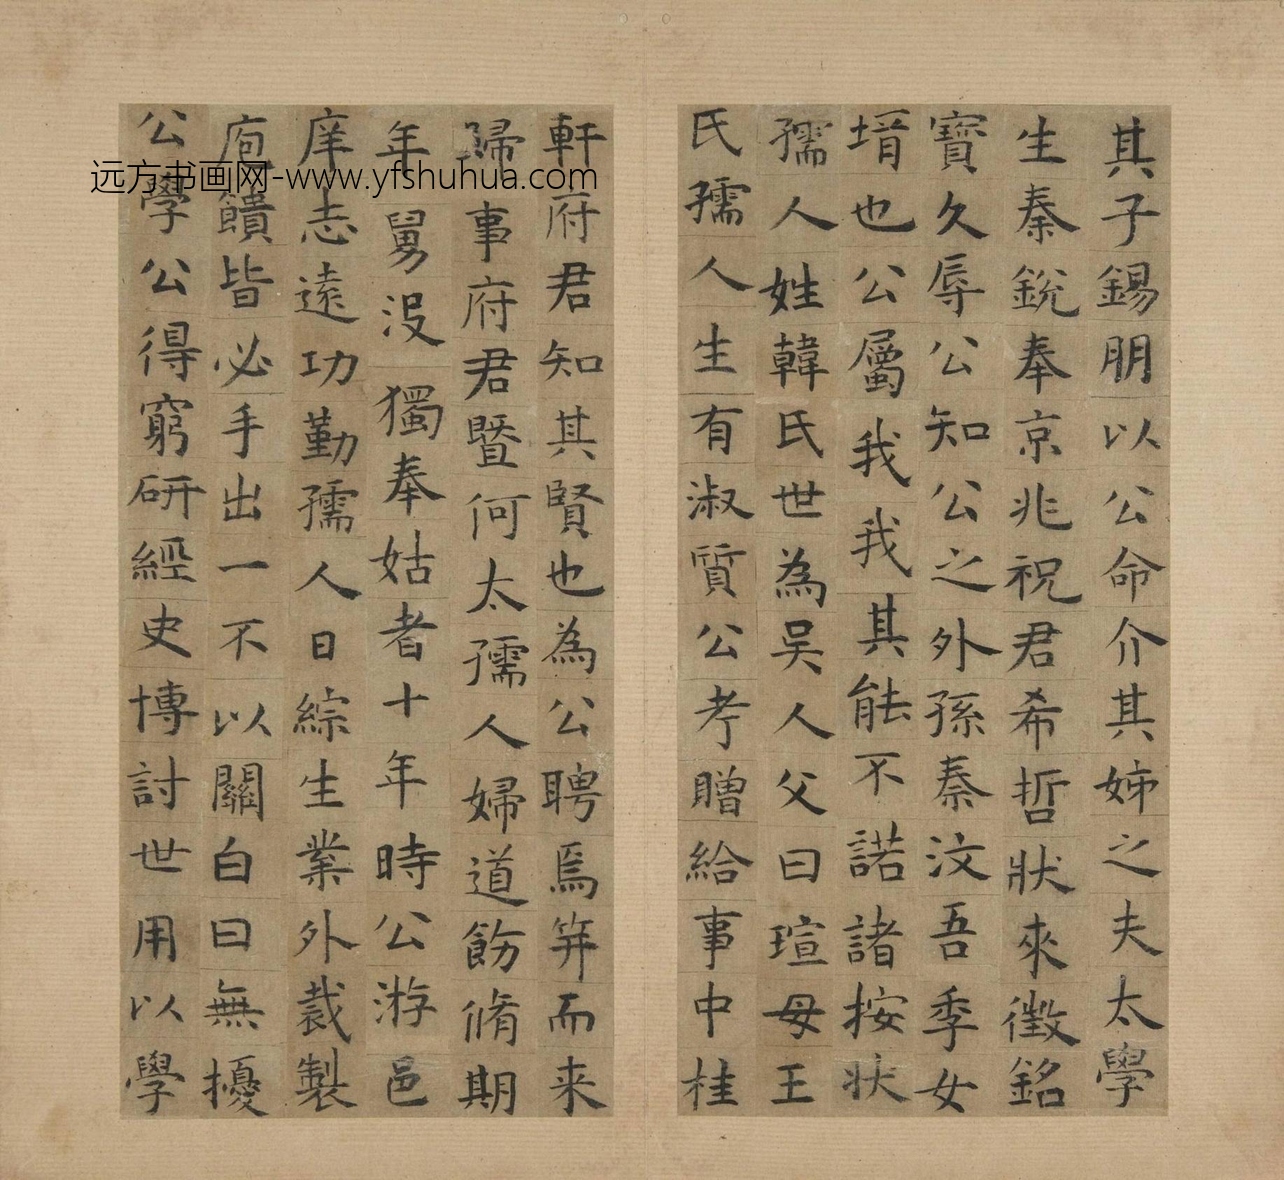 其子錫朋以公命介其姊之夫太學
生秦銳奉京兆祝君希哲狀來徵銘
寶久辱公知公之外孫秦汶吾季女
壻也公屬我我其能不諾諸按狀
孺人姓韓氏世為吴人父曰瑄母王
氏孺人生有淑質公考贈給事中桂
軒府君知其賢也為公聘焉笄而来
歸事府君暨何太孺人婦道飭脩期
年舅没獨奉姑者十年時公游邑
庠志遠功勤孺人日綜生業外裁製
庖饋皆必手出一不以關白曰無擾
公學公得窮研經史博討世用以學
远方书画网-www.yfshuhua.com